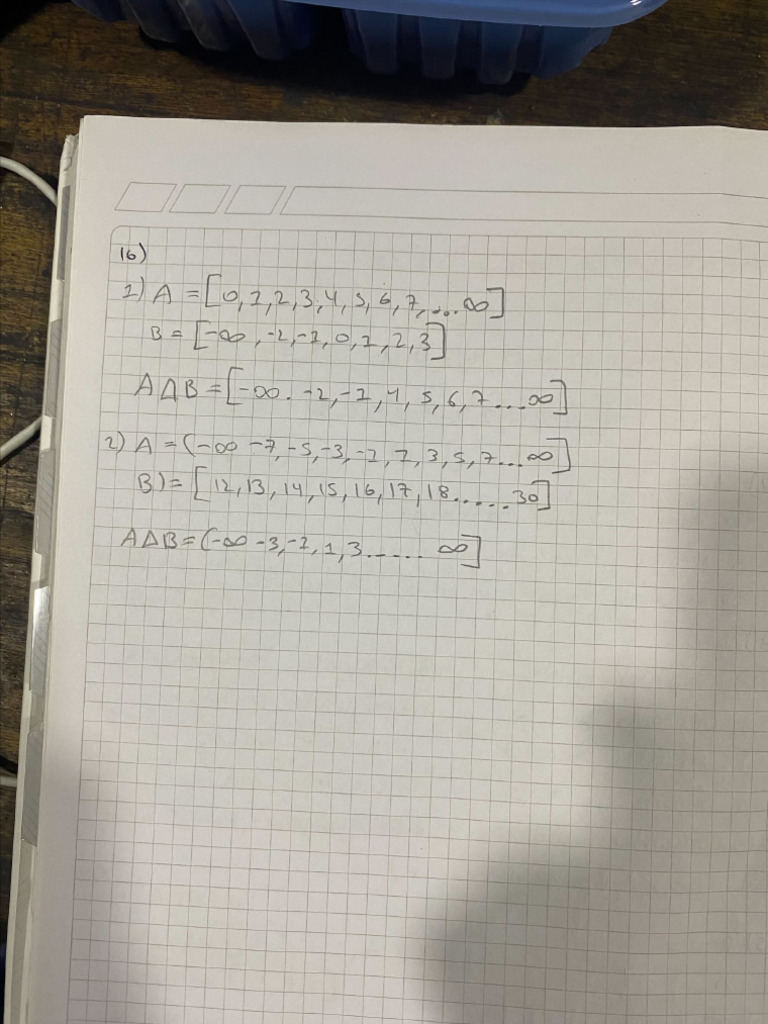 16)
1) A = [0, 1, 2, 3, 4, 5, 6, 7, ... ∞]
B = [-∞, -2, -1, 0, 1, 2, 3]
A Δ B = [-∞. -2, -1, 4, 5, 6, 7 ... ∞]
2) A = (-∞ -7, -5, -3, -1, 1, 3, 5, 7 ... ∞]
B) = [12, 13, 14, 15, 16, 17, 18 ..... 30]
A Δ B = (-∞ -3, -1, 1, 3 ..... ∞]